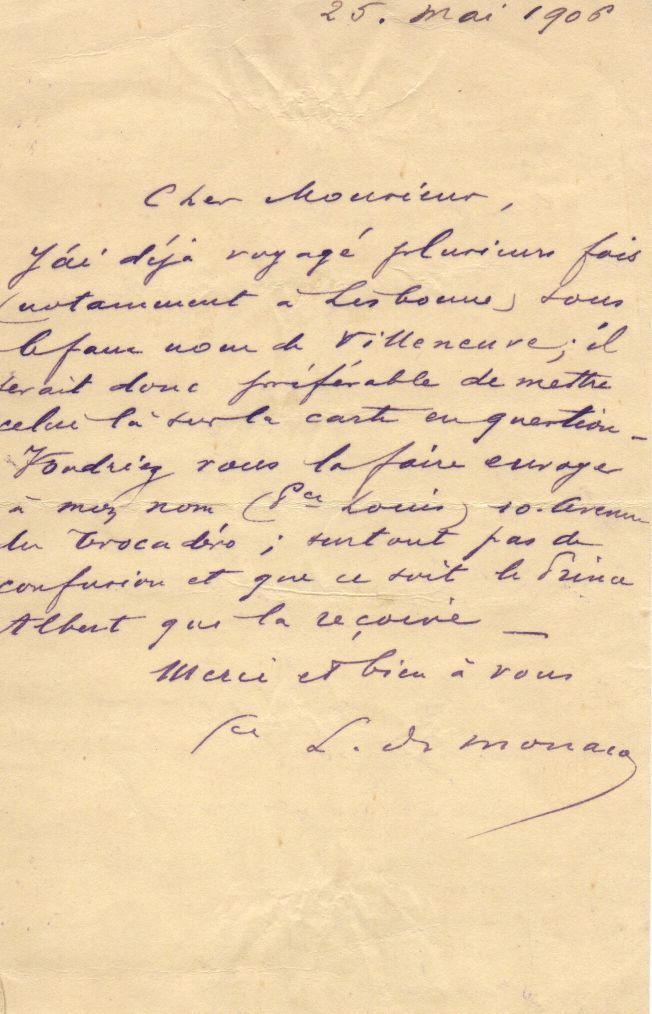 25. Mai 1906
Cher Monsieur,
J'ai déjà voyagé plusieurs fois
(notamment à Lisbonne) sous
le faux nom de Villeneuve; il
serait donc préférable de mettre
celui là sur la carte en question –
Voudriez vous la faire envoyer
à mon nom (Pce Louis) 10. Avenue
du Trocadéro; surtout pas de
confusion et que ce soit le Prince
Albert que la reçoive –
Merci et bien à vous
Pce L. de Monaco